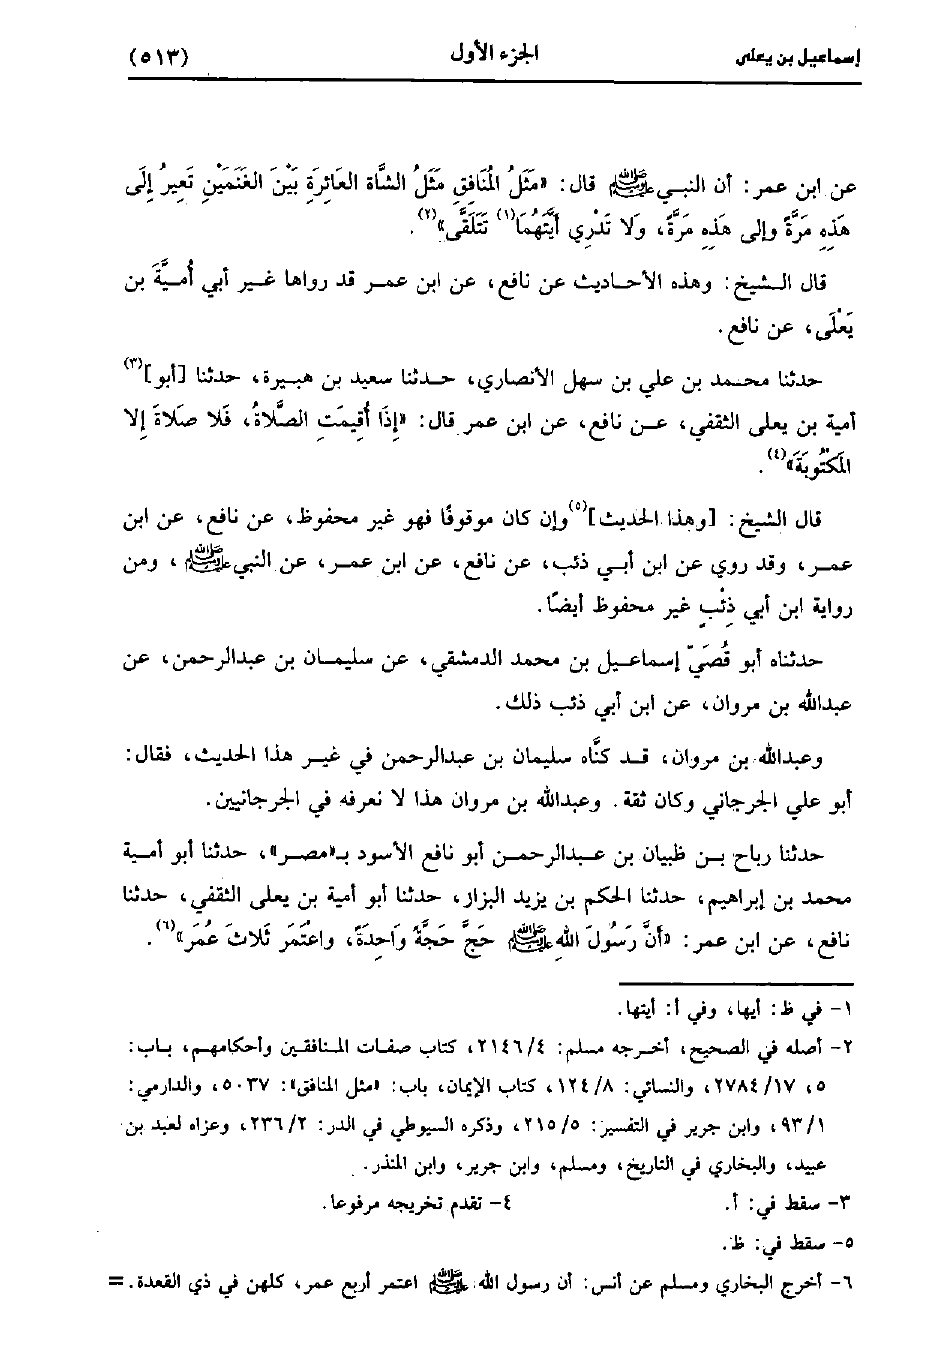 إسماعيل بن يعلى الجزء الأول (٥١٣)
عن ابن عمر: أن النبي ﷺ قال: «مَثَلُ المُنَافِقِ مَثَلُ الشَّاة العَائِرَةِ بَيْنَ الغَنَمَيْنِ تَعِيرُ إِلَى
هَذِهِ مَرَّةً وإلى هَذِه مَرَّةً، وَلَا تَدْرِي أَيَّتَهُمَا(١) تَتَلَقَّى»(٢).
قال الشيخ: وهذه الأحاديث عن نافع، عن ابن عمر قد رواها غير أبي أُمَيَّةَ بن
يَعْلَى، عن نافع.
حدثنا محمد بن علي بن سهل الأنصاري، حدثنا سعيد بن هبيرة، حدثنا [أبو](٣)
أمية بن يعلى الثقفي، عن نافع، عن ابن عمر قال: «إِذَا أُقِيمَتِ الصَّلَاةُ، فَلا صَلَاةَ إِلا
المَكْتُوبَةَ»(٤).
قال الشيخ: [وهذا الحديث](٥) وإن كان موقوفًا فهو غير محفوظ، عن نافع، عن ابن
عمر، وقد روي عن ابن أبي ذئب، عن نافع، عن ابن عمر، عن النبي ﷺ، ومن
رواية ابن أبي ذِئْبٍ غير محفوظ أيضًا.
حدثناه أبو قُصَيّ إسماعيل بن محمد الدمشقي، عن سليمان بن عبدالرحمن، عن
عبدالله بن مروان، عن ابن أبي ذئب ذلك.
وعبدالله بن مروان، قد كنَّاه سليمان بن عبدالرحمن في غير هذا الحديث، فقال:
أبو علي الجرجاني وكان ثقة. وعبدالله بن مروان هذا لا نعرفه في الجرجانيين.
حدثنا رباح بن ظبيان بن عبدالرحمن أبو نافع الأسود بـ«مصر»، حدثنا أبو أمية
محمد بن إبراهيم، حدثنا الحكم بن يزيد البزار، حدثنا أبو أمية بن يعلى الثقفي، حدثنا
نافع، عن ابن عمر: «أَنَّ رَسُولَ اللهِ ﷺ حَجَّ حَجَّةً وَاحِدَةً، واعْتَمَر ثَلاثَ عُمَرَ»(٦).
١- في ظ: أيها، وفي أ: أيتها.
٢- أصله في الصحيح، أخرجه مسلم: ٤/ ٢١٤٦، كتاب صفات المنافقين وأحكامهم، باب:
٥، ١٧/ ٢٧٨٤، والنسائي: ٨/ ١٢٤، كتاب الإيمان، باب: «مثل المنافق»: ٥٠٣٧، والدارمي:
١/ ٩٣، وابن جرير في التفسير: ٥/ ٢١٥، وذكره السيوطي في الدر: ٢/ ٢٣٦، وعزاه لعبد بن
عبيد، والبخاري في التاريخ، ومسلم، وابن جرير، وابن المنذر.
٣- سقط في: أ. ٤- تقدم تخريجه مرفوعا.
٥- سقط في: ظ.
٦- أخرج البخاري ومسلم عن أنس: أن رسول الله ﷺ اعتمر أربع عمر، كلهن في ذي القعدة. =